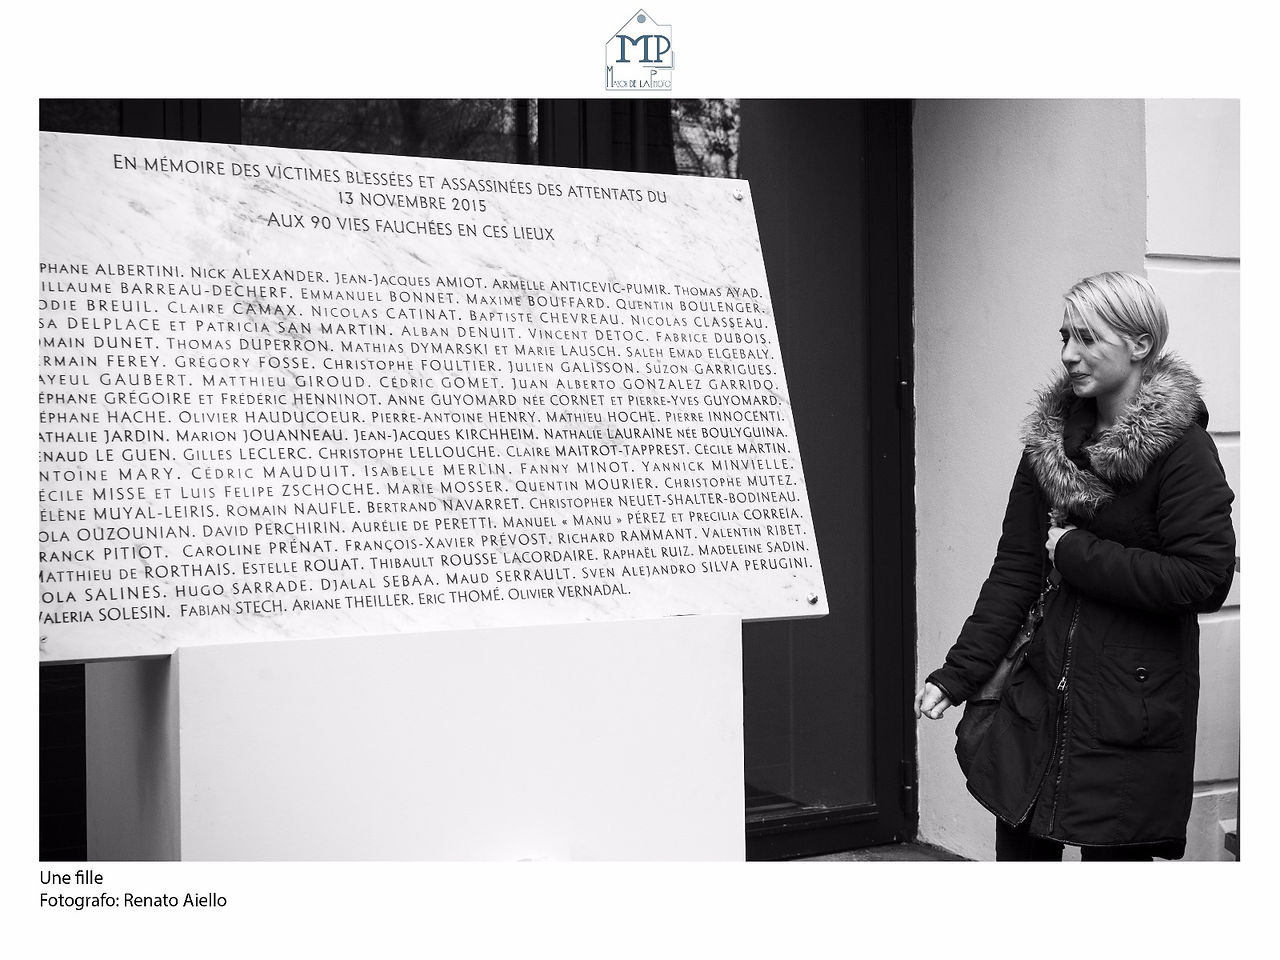 MP
MAISON DE LA PHOTO
EN MÉMOIRE DES VICTIMES BLESSÉES ET ASSASSINÉES DES ATTENTATS DU
13 NOVEMBRE 2015
AUX 90 VIES FAUCHÉES EN CES LIEUX
PHANE ALBERTINI. NICK ALEXANDER. JEAN-JACQUES AMIOT. ARMELLE ANTICEVIC-PUMIR. THOMAS AYAD.
ILLAUME BARREAU-DECHERF. EMMANUEL BONNET. MAXIME BOUFFARD. QUENTIN BOULENGER.
ODIE BREUIL. CLAIRE CAMAX. NICOLAS CATINAT. BAPTISTE CHEVREAU. NICOLAS CLASSEAU.
SA DELPLACE ET PATRICIA SAN MARTIN. ALBAN DENUIT. VINCENT DETOC. FABRICE DUBOIS.
MAIN DUNET. THOMAS DUPERRON. MATHIAS DYMARSKI ET MARIE LAUSCH. SALEH EMAD ELGEBALY.
ERMAIN FEREY. GRÉGORY FOSSE. CHRISTOPHE FOULTIER. JULIEN GALISSON. SUZON GARRIGUES.
AYEUL GAUBERT. MATTHIEU GIROUD. CÉDRIC GOMET. JUAN ALBERTO GONZALEZ GARRIDO.
ÉPHANE GRÉGOIRE ET FRÉDÉRIC HENNINOT. ANNE GUYOMARD NÉE CORNET ET PIERRE-YVES GUYOMARD.
ÉPHANE HACHE. OLIVIER HAUDUCOEUR. PIERRE-ANTOINE HENRY. MATHIEU HOCHE. PIERRE INNOCENTI.
ATHALIE JARDIN. MARION JOUANNEAU. JEAN-JACQUES KIRCHHEIM. NATHALIE LAURAINE NÉE BOULYGUINA.
ENAUD LE GUEN. GILLES LECLERC. CHRISTOPHE LELLOUCHE. CLAIRE MAITROT-TAPPREST. CÉCILE MARTIN.
NTOINE MARY. CÉDRIC MAUDUIT. ISABELLE MERLIN. FANNY MINOT. YANNICK MINVIELLE.
ÉCILE MISSE ET LUIS FELIPE ZSCHOCHE. MARIE MOSSER. QUENTIN MOURIER. CHRISTOPHE MUTEZ.
ÉLÈNE MUYAL-LEIRIS. ROMAIN NAUFLE. BERTRAND NAVARRET. CHRISTOPHER NEUET-SHALTER-BODINEAU.
OLA OUZOUNIAN. DAVID PERCHIRIN. AURÉLIE DE PERETTI. MANUEL « MANU » PÉREZ ET PRECILIA CORREIA.
RANCK PITIOT. CAROLINE PRÉNAT. FRANÇOIS-XAVIER PRÉVOST. RICHARD RAMMANT. VALENTIN RIBET.
MATTHIEU DE RORTHAIS. ESTELLE ROUAT. THIBAULT ROUSSE LACORDAIRE. RAPHAËL RUIZ. MADELEINE SADIN.
OLA SALINES. HUGO SARRADE. DJALAL SEBAA. MAUD SERRAULT. SVEN ALEJANDRO SILVA PERUGINI.
VALERIA SOLESIN. FABIAN STECH. ARIANE THEILLER. ERIC THOMÉ. OLIVIER VERNADAL.
Une fille
Fotografo: Renato Aiello